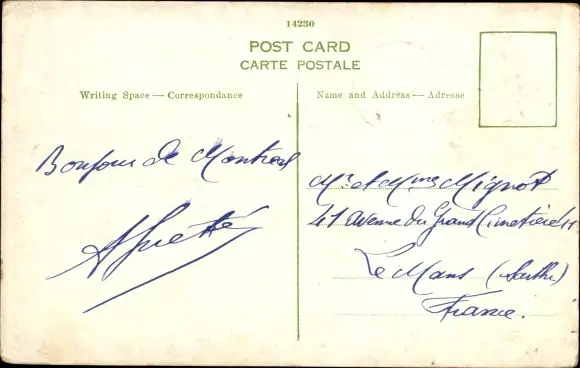 14230
POST CARD
CARTE POSTALE
Writing Space — Correspondance
Name and Address — Adresse
Bonjour de Montreal
Mr et Mme Mignot
41 Avenue du Grand Cimetière
Le Mans (Sarthe)
France.